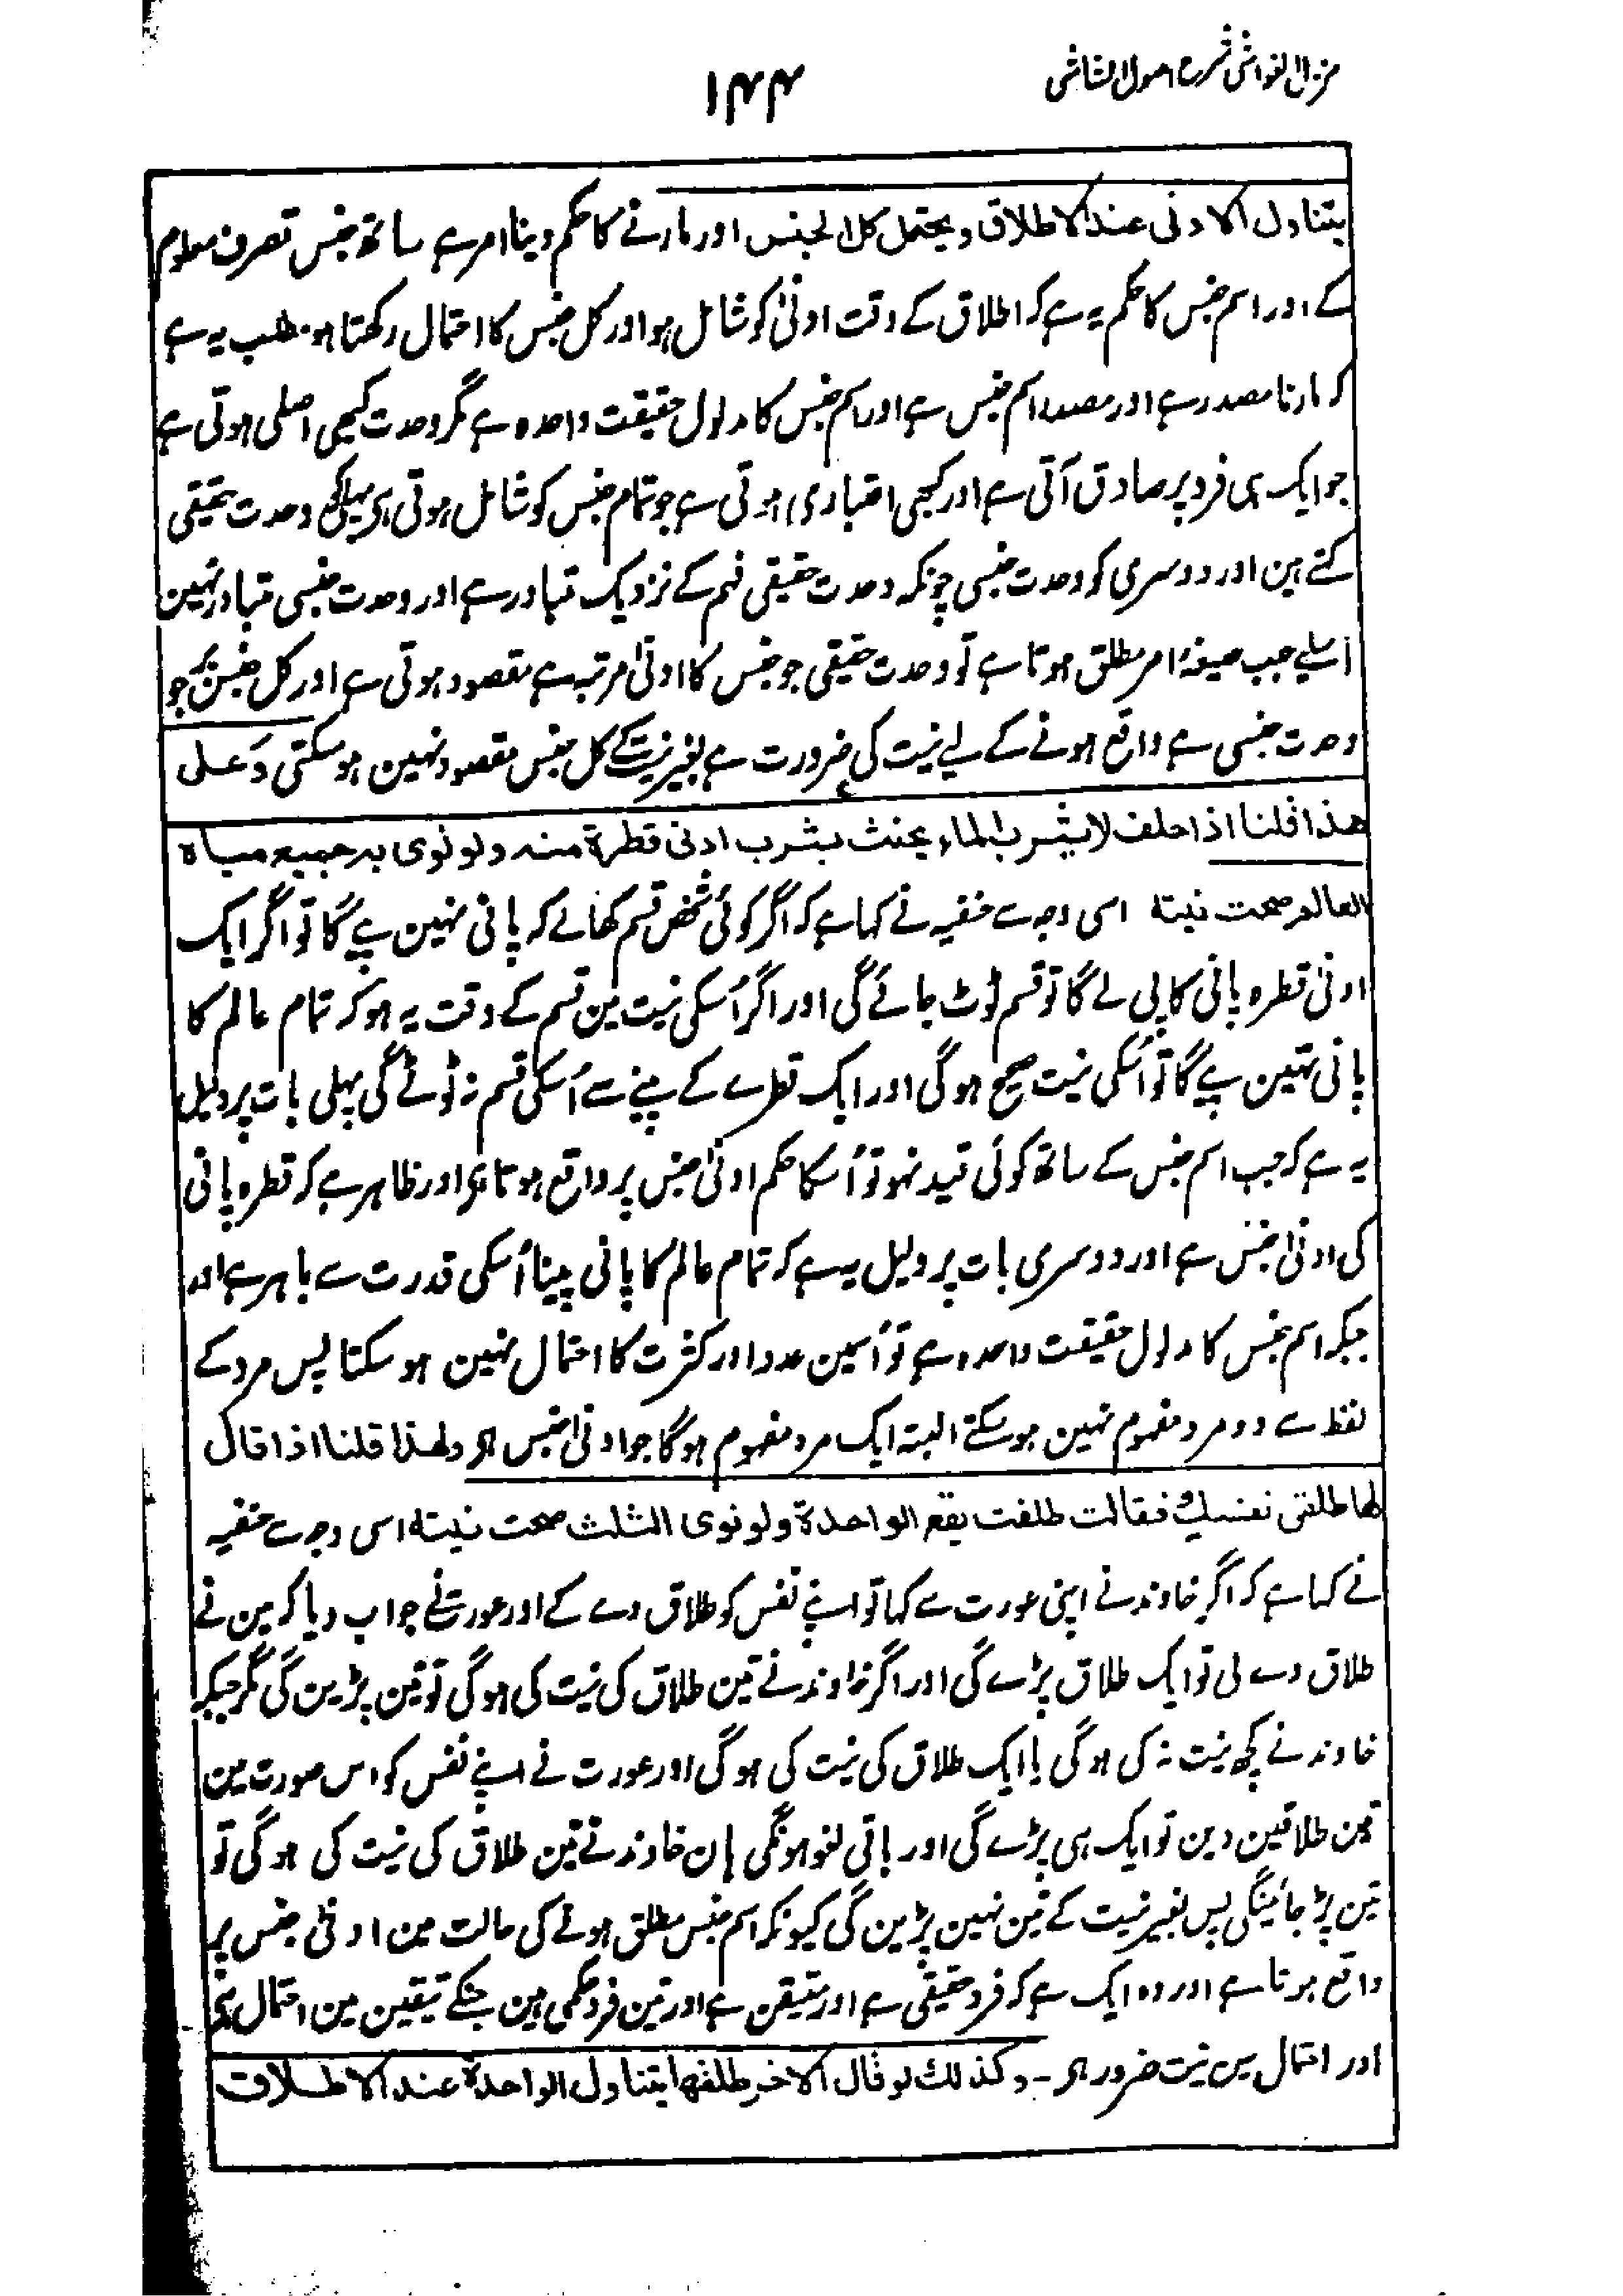 مزیل الغواشی شرح اصول الشاشی
۱۴۴
یتناول الادنی عند الاطلاق ویحتمل کل الجنس اور مارنے کا حکم دینا امر ہے ساتھ جنس تصرف معلوم
کے اور اسم جنس کا حکم یہ ہے کہ اطلاق کے وقت ادنیٰ کو شامل ہو اور کل جنس کا احتمال رکھتا ہو مطلب یہ ہے
کہ مارنا مصدر ہے اور مصدر اسم جنس ہے اور اسم جنس کا مدلول حقیقت واحدہ ہے مگر وحدت کبھی اصلی ہوتی ہے
جو ایک ہی فرد پر صادق آتی ہے اور کبھی اعتباری ہوتی ہے جو تمام جنس کو شامل ہوتی ہی پہلی کو وحدت حقیقی
کہتے ہین اور دوسری کو وحدت جنسی چونکہ وحدت حقیقی فہم کے نزدیک متبادر ہے اور وحدت جنسی متبادر نہین
اسلیے جب صیغۂ امر مطلق ہوتا ہے تو وحدت حقیقی جو جنس کا ادنیٰ مرتبہ ہے مقصود ہوتی ہے اور کل جنس جو
وحدت جنسی ہے واقع ہونے کے لیے نیت کی ضرورت ہے بغیر نیت کے کل جنس مقصود نہین ہو سکتی وعلی
هذا قلنا اذا حلف لا یشرب الماء یحنث بشرب ادنی قطرة منه ولو نوی به جمیع میاه
العالم صحت نیته اسی وجہ سے حنفیہ نے کہا ہے کہ اگر کوئی شخص قسم کھالے کہ پانی نہین پیے گا تو اگر ایک
ادنیٰ قطرہ پانی کا پی لے گا تو قسم ٹوٹ جائے گی اور اگر اُسکی نیت مین قسم کے وقت یہ ہو کہ تمام عالم کا
پانی نہین پیے گا تو اُسکی نیت صحیح ہوگی اور ایک قطرے کے پینے سے اُسکی قسم نہ ٹوٹے گی پہلی بات پر دلیل
یہ ہے کہ جب اسم جنس کے ساتھ کوئی قید نہو تو اُسکا حکم ادنیٰ جنس پر واقع ہوتا ہی اور ظاہر ہے کہ قطرہ پانی
کی ادنیٰ جنس ہے اور دوسری بات پر دلیل یہ ہے کہ تمام عالم کا پانی پینا اُسکی قدرت سے باہر ہے اور
جبکہ اسم جنس کا مدلول حقیقت واحدہ ہے تو اُسمین عدد اور کثرت کا احتمال نہین ہو سکتا پس مرد کے
لفظ سے دو مرد مفہوم نہین ہو سکتے البتہ ایک مرد مفہوم ہوگا جو ادنیٰ جنس ہی ولهذا قلنا اذا قال
لها طلقی نفسك فقالت طلقت یقع الواحدة ولو نوی الثلث صحت نیته اسی وجہ سے حنفیہ
نے کہا ہے کہ اگر خاوند نے اپنی عورت سے کہا تو اپنے نفس کو طلاق دے لے اور عورت نے جواب دیا کہ مین نے
طلاق دے لی تو ایک طلاق پڑے گی اور اگر خاوند نے تین طلاق کی نیت کی ہوگی تو تین پڑین گی مگر جبکہ
خاوند نے کچھ نیت نہ کی ہوگی یا ایک طلاق کی نیت کی ہوگی اور عورت نے اپنے نفس کو اس صورت مین
تین طلاقین دین تو ایک ہی پڑے گی اور باقی لغو ہونگی ہان خاوند نے تین طلاق کی نیت کی ہوگی تو
تین پڑ جائینگی پس بغیر نیت کے تین نہین پڑین گی کیونکہ اسم جنس مطلق ہونے کی حالت مین ادنیٰ جنس پر
واقع ہوتا ہے اور وہ ایک ہے کہ فرد حقیقی ہے اور متیقن ہے اور تین فرد حکمی ہین جنکے تیقین مین احتمال ہی
اور احتمال مین نیت ضرور ہی۔ وکذلك لو قال الاخر طلقها یتناول الواحدة عند الاطلاق